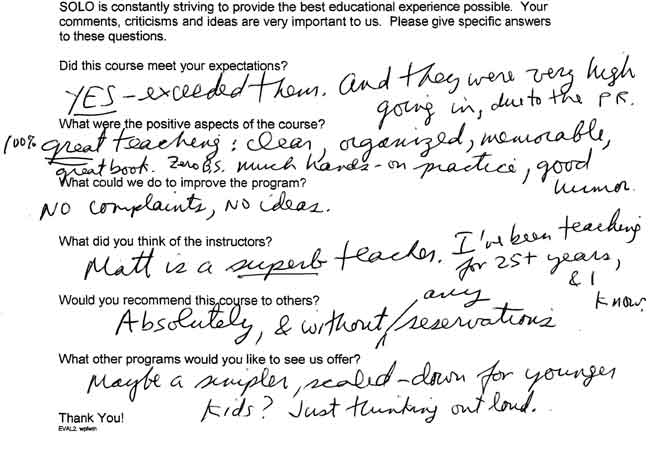 SOLO is constantly striving to provide the best educational experience possible. Your
comments, criticisms and ideas are very important to us. Please give specific answers
to these questions.
Did this course meet your expectations?
YES - exceeded them. And they were very high
going in, due to the PR.
What were the positive aspects of the course?
100% great teaching: clear, organized, memorable,
great book. Zero B.S. much hands-on practice, good
humor.
What could we do to improve the program?
No complaints, No ideas.
What did you think of the instructors?
Matt is a superb teacher. I've been teaching
for 25+ years,
& I
know.
Would you recommend this course to others?
Absolutely, & without any reservations
What other programs would you like to see us offer?
Maybe a simpler, scaled-down for younger
kids? Just thinking out loud.
Thank You!
EVAL2 wpfwin